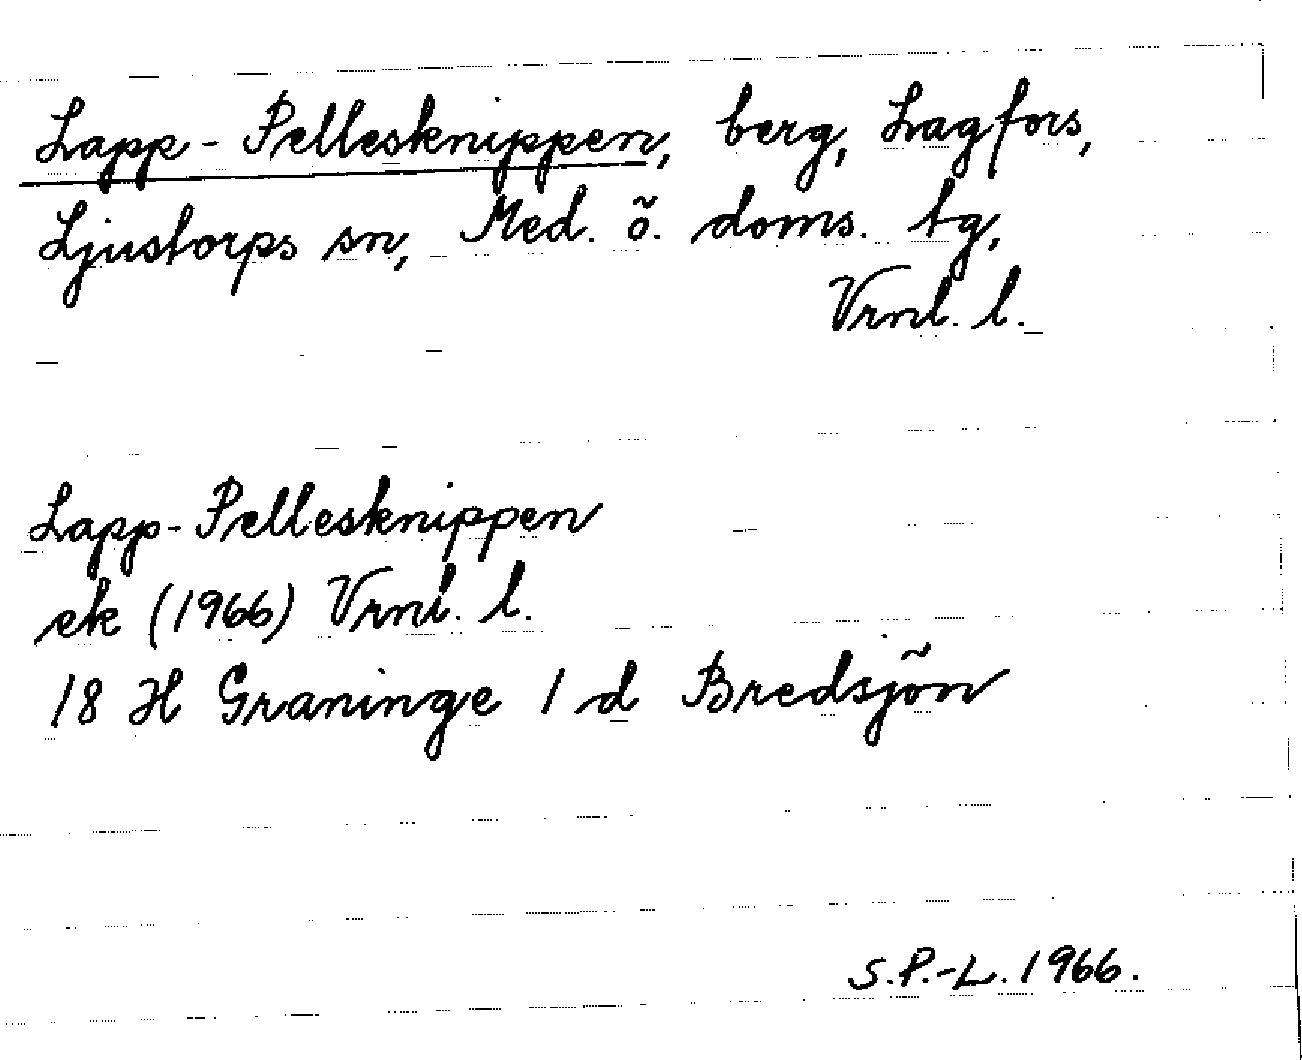 Lapp-Pellesknippen, berg, Lagfors,
Ljustorps sn, Med. ö. doms. tg,
Vrnl. l.
Lapp-Pellesknippen
ek (1966) Vrnl. l.
18 H Graninge 1 d Bredsjön
S.P.-L. 1966.